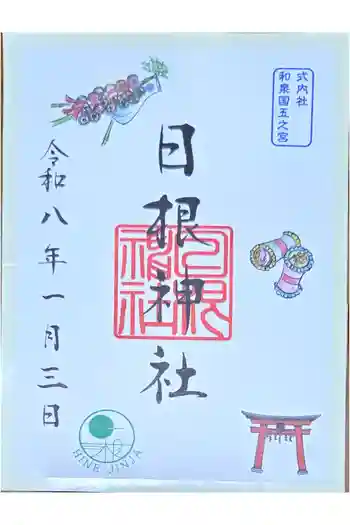 式内社
和泉国五之宮
日根神社
令和八年一月三日
日根神社
HINE JINJA